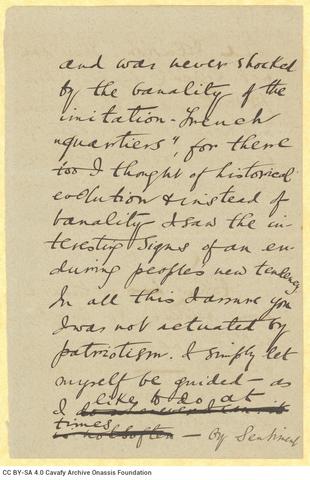 and was never shocked
by the banality of the
imitation-French
"quartiers", for there
too I thought of historical
evolution & instead of
banality I saw the in-
teresting signs of an en-
during people's new tendency.
In all this I assure you
I was not actuated by
patriotism. I simply let
myself be guided — as
like to do at
I
times
is not often — by Sentiment
CC BY-SA 4.0 Cavafy Archive Onassis Foundation